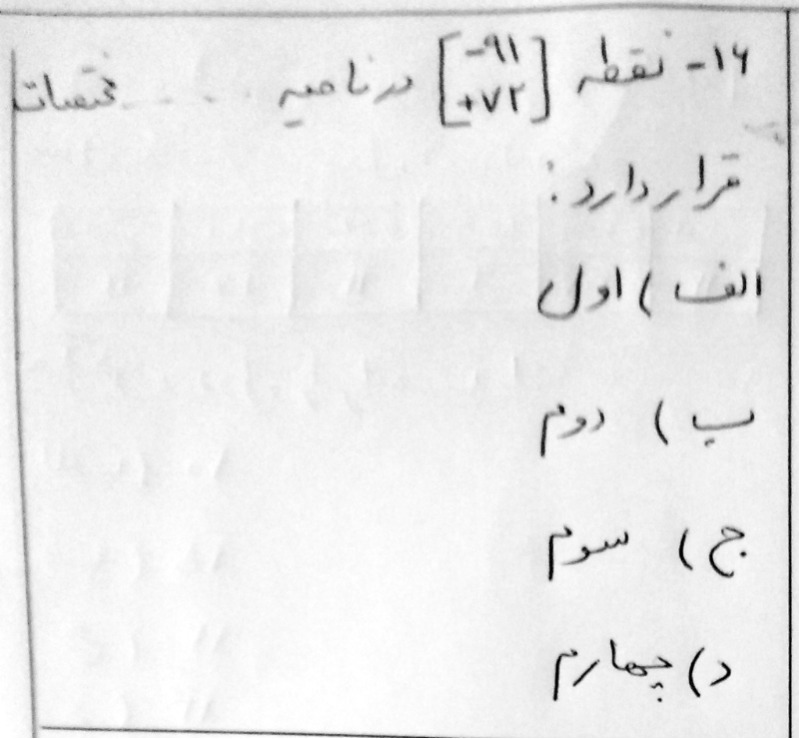 ۱۶- نقطه [−۹۱ +۷۲] در ناحیه ..... مختصات
قرار دارد:
الف) اول
ب) دوم
ج) سوم
د) چهارم